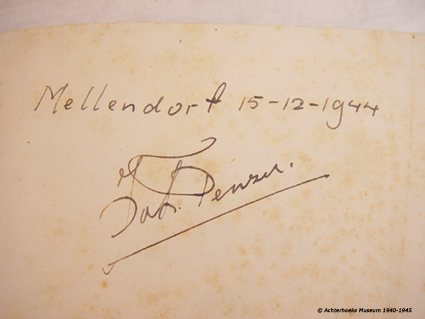 Mellendorf 15-12-1944
Joh.
© Achterhoeks Museum 1940-1945